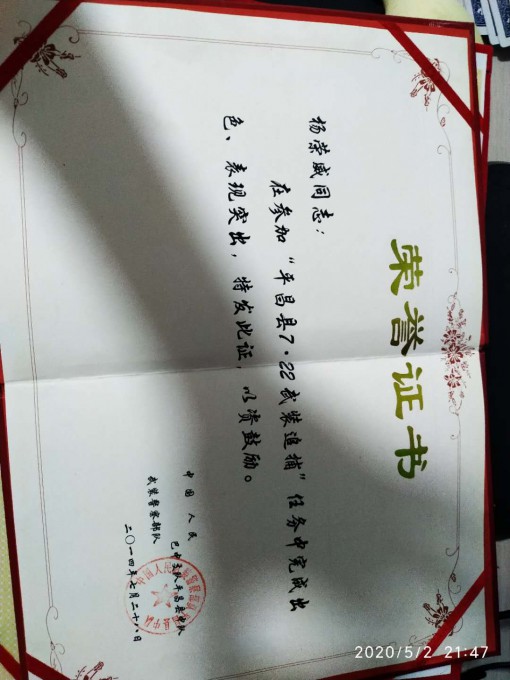 荣誉证书
杨荣威同志：
在参加“平昌县7·22武装追捕”任务中完成出
色、表现突出，特发此证，以资鼓励。
中国人民
武装警察部队
巴中支队平昌县中队
二〇一四年七月二十八日
2020/5/2 21:47